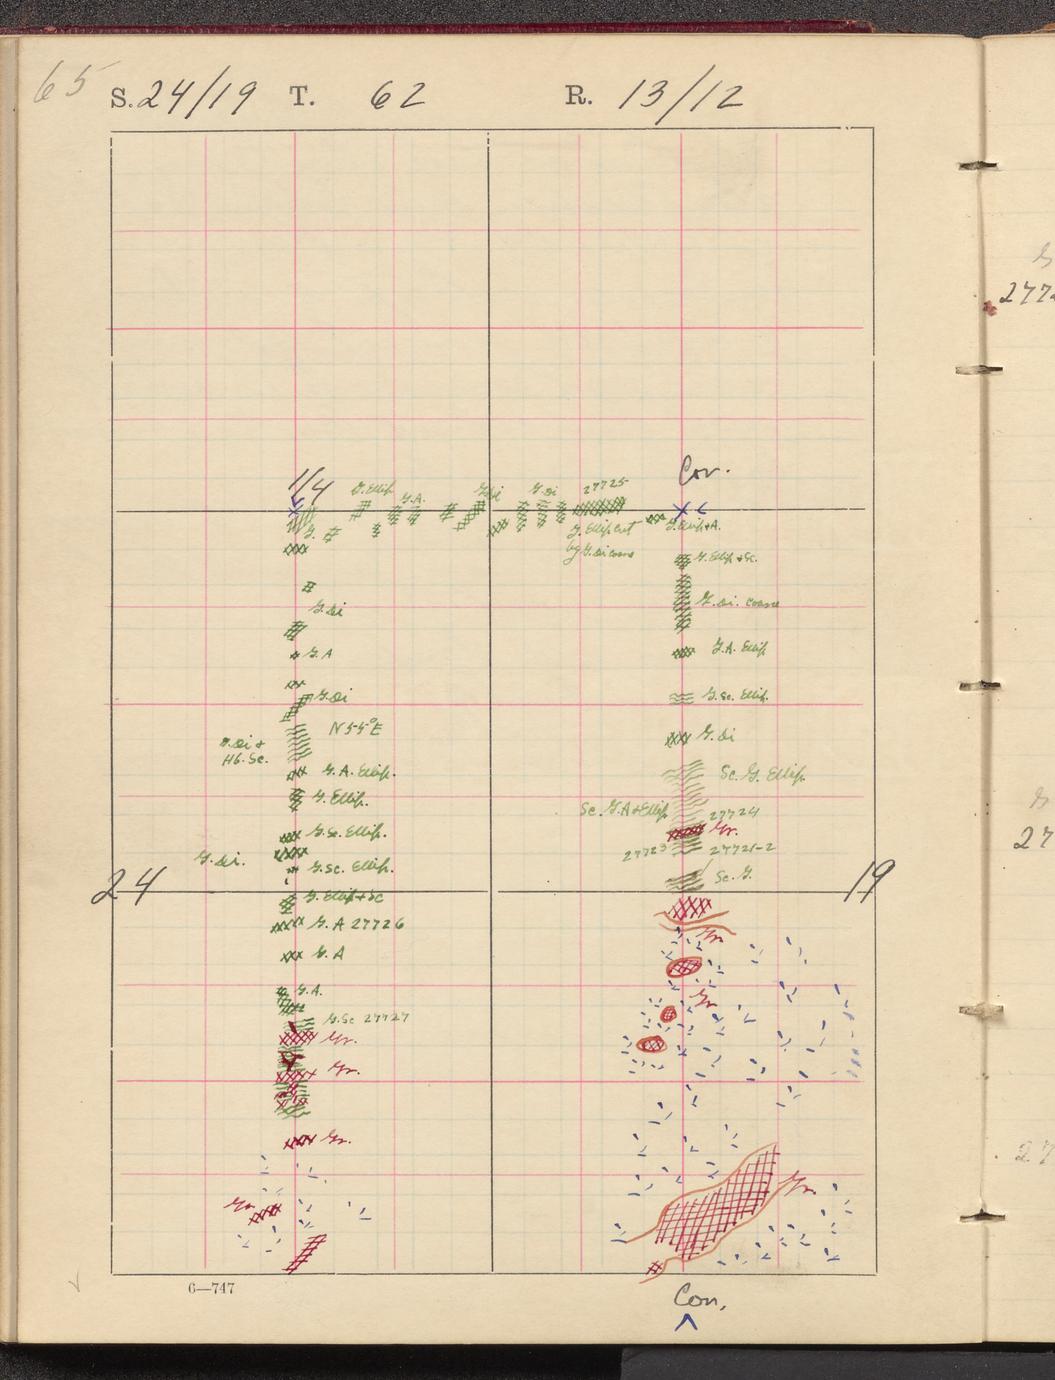 65
S. 24/19 T. 62 R. 13/12
1/4
G. Ellip.
G.A.
G. Di
G. Di
27725
Cor.
G.
G. Ellip cut
by G. Di coarse
G. Ellip + A.
G. Ellip + Sc.
G. Di
G. Di. coarse
G. A
G.A. Ellip
G. Di
G. Sc. Ellip.
N 55° E
G. Di
G. Di +
Hb. Sc.
G. A. Ellip.
Sc. G. Ellip.
G. Ellip.
Sc. G. A + Ellip
27724
G. Sc. Ellip.
Gr.
27723
27721-2
G. Di.
G. Sc. Ellip.
Sc. G.
24
19
G. Ellip + Sc
G. A 27726
Gr.
G. A
G. A.
Gr
G. Sc 27727
Gr.
Gr.
Gr.
Gr.
Gr.
6—747
Cor.
2772
27
27